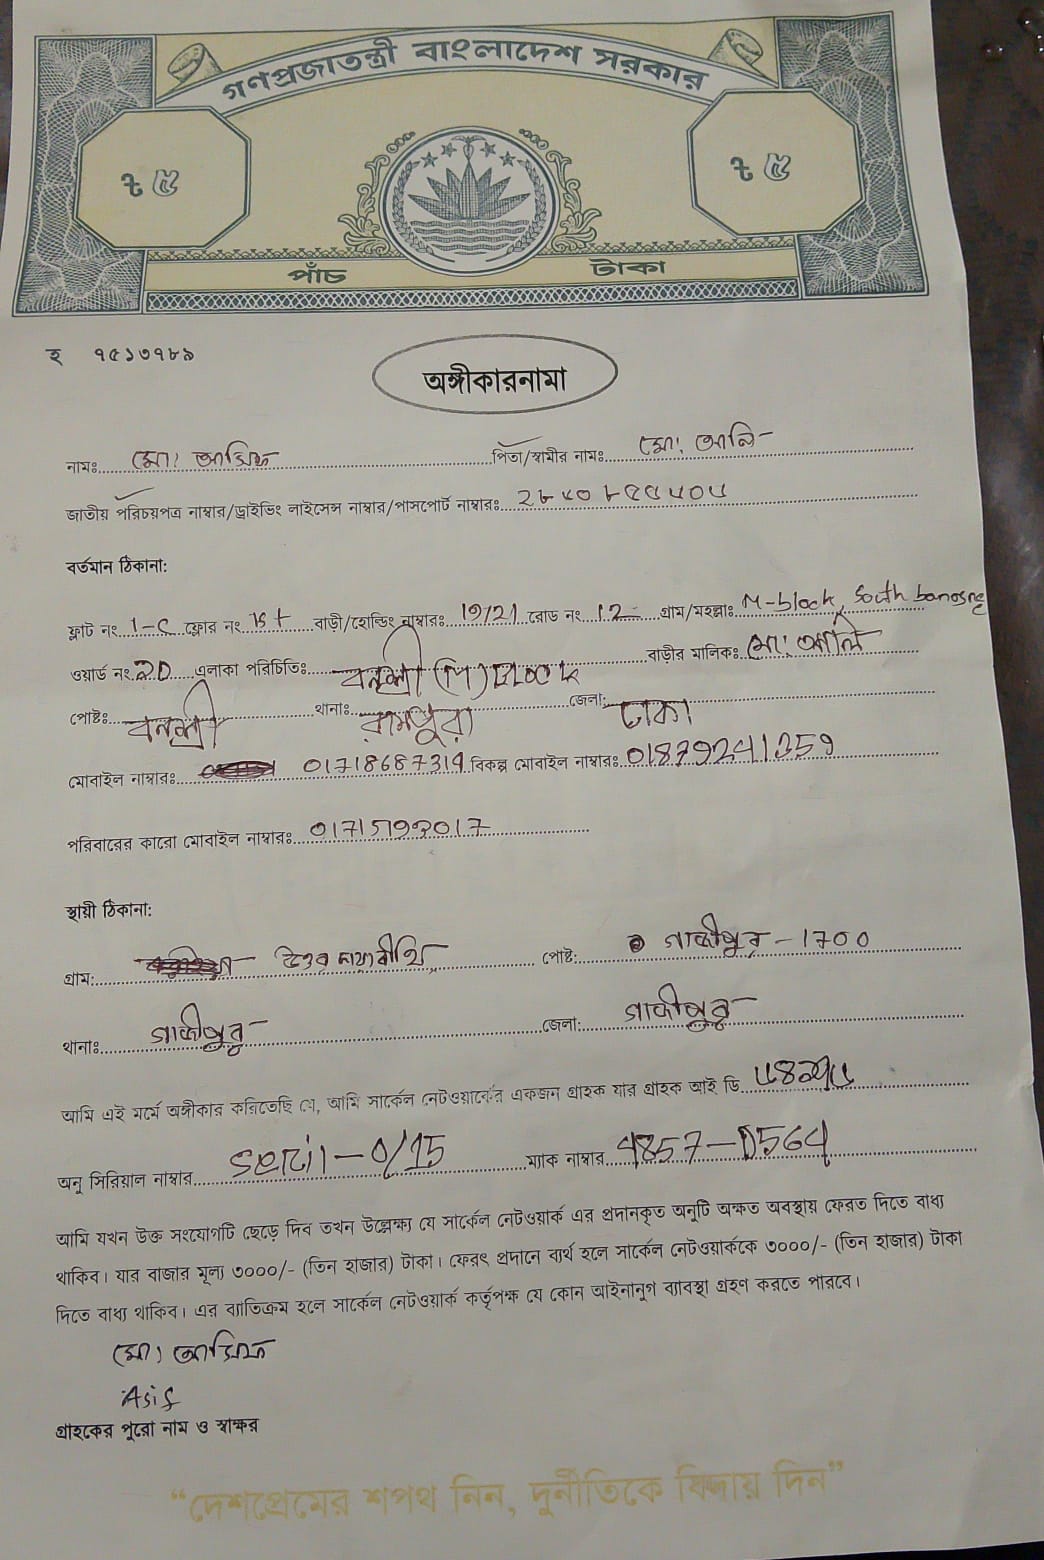 গণপ্রজাতন্ত্রী বাংলাদেশ সরকার
৳ ৫ ৳ ৫
পাঁচ টাকা
ং ৭৫১৩৭৮৯
অঙ্গীকারনামা
নামঃ মোঃ আসিফ পিতা/স্বামীর নামঃ মোঃ আলি
জাতীয় পরিচয়পত্র নাম্বার/ড্রাইভিং লাইসেন্স নাম্বার/পাসপোর্ট নাম্বারঃ ২৮৫০৮৫৫৫০৫
বর্তমান ঠিকানা:
ফ্লাট নং 1-C ফ্লোর নং 1st বাড়ী/হোল্ডিং নাম্বারঃ 19/21 রোড নং 12 গ্রাম/মহল্লাঃ M-block, South banosree
ওয়ার্ড নং 20 এলাকা পরিচিতিঃ বনশ্রী Block বাড়ীর মালিকঃ মোঃ আলি
পোষ্টঃ বনশ্রী থানাঃ রামপুরা জেলা: ঢাকা
মোবাইল নাম্বারঃ 01718687314 বিকল্প মোবাইল নাম্বারঃ 01879241359
পরিবারের কারো মোবাইল নাম্বারঃ
স্থায়ী ঠিকানা:
গ্রাম: উত্তর ছায়াবীথি পোষ্ট: গাজীপুর - 1700
থানাঃ গাজীপুর জেলা: গাজীপুর
আমি এই মর্মে অঙ্গীকার করিতেছি যে, আমি সার্কেল নেটওয়ার্কের একজন গ্রাহক যার গ্রাহক আই ডি
অনু সিরিয়াল নাম্বার 0/15 ম্যাক নাম্বার 4857-D564
আমি যখন উক্ত সংযোগটি ছেড়ে দিব তখন উল্লেক্ষ্য যে সার্কেল নেটওয়ার্ক এর প্রদানকৃত অনুটি অক্ষত অবস্থায় ফেরত দিতে বাধ্য
থাকিব। যার বাজার মূল্য ৩০০০/- (তিন হাজার) টাকা। ফেরৎ প্রদানে ব্যর্থ হলে সার্কেল নেটওয়ার্ককে ৩০০০/- (তিন হাজার) টাকা
দিতে বাধ্য থাকিব। এর ব্যাতিক্রম হলে সার্কেল নেটওয়ার্ক কর্তৃপক্ষ যে কোন আইনানুগ ব্যাবস্থা গ্রহণ করতে পারবে।
মোঃ আসিফ
Asif
গ্রাহকের পুরো নাম ও স্বাক্ষর
“দেশপ্রেমের শপথ নিন, দুর্নীতিকে বিদায় দিন”